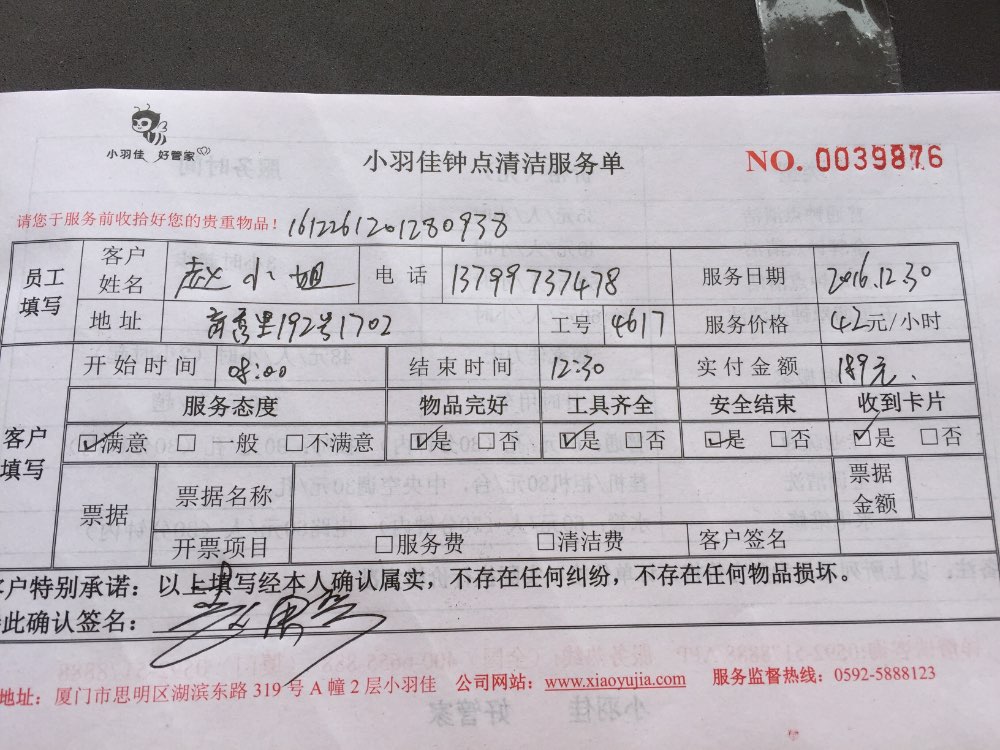 小羽佳 好管家
小羽佳钟点清洁服务单
NO. 0039876
请您于服务前收拾好您的贵重物品！161226120128093​8
员工填写 客户姓名 赵小姐 电话 13799737478 服务日期 2016.12.30
地址 192号1702 工号 4617 服务价格 42元/小时
客户填写 开始时间 08:00 结束时间 12:30 实付金额 189元.
服务态度 物品完好 工具齐全 安全结束 收到卡片
☑满意 □一般 □不满意 ☑是 □否 ☑是 □否 ☑是 □否 ☑是 □否
票据 票据名称 票据金额
开票项目 □服务费 □清洁费 客户签名
客户特别承诺：以上填写经本人确认属实，不存在任何纠纷，不存在任何物品损坏。
此确认签名：
地址：厦门市思明区湖滨东路319号A幢2层小羽佳 公司网站：www.xiaoyujia.com 服务监督热线：0592-5888123